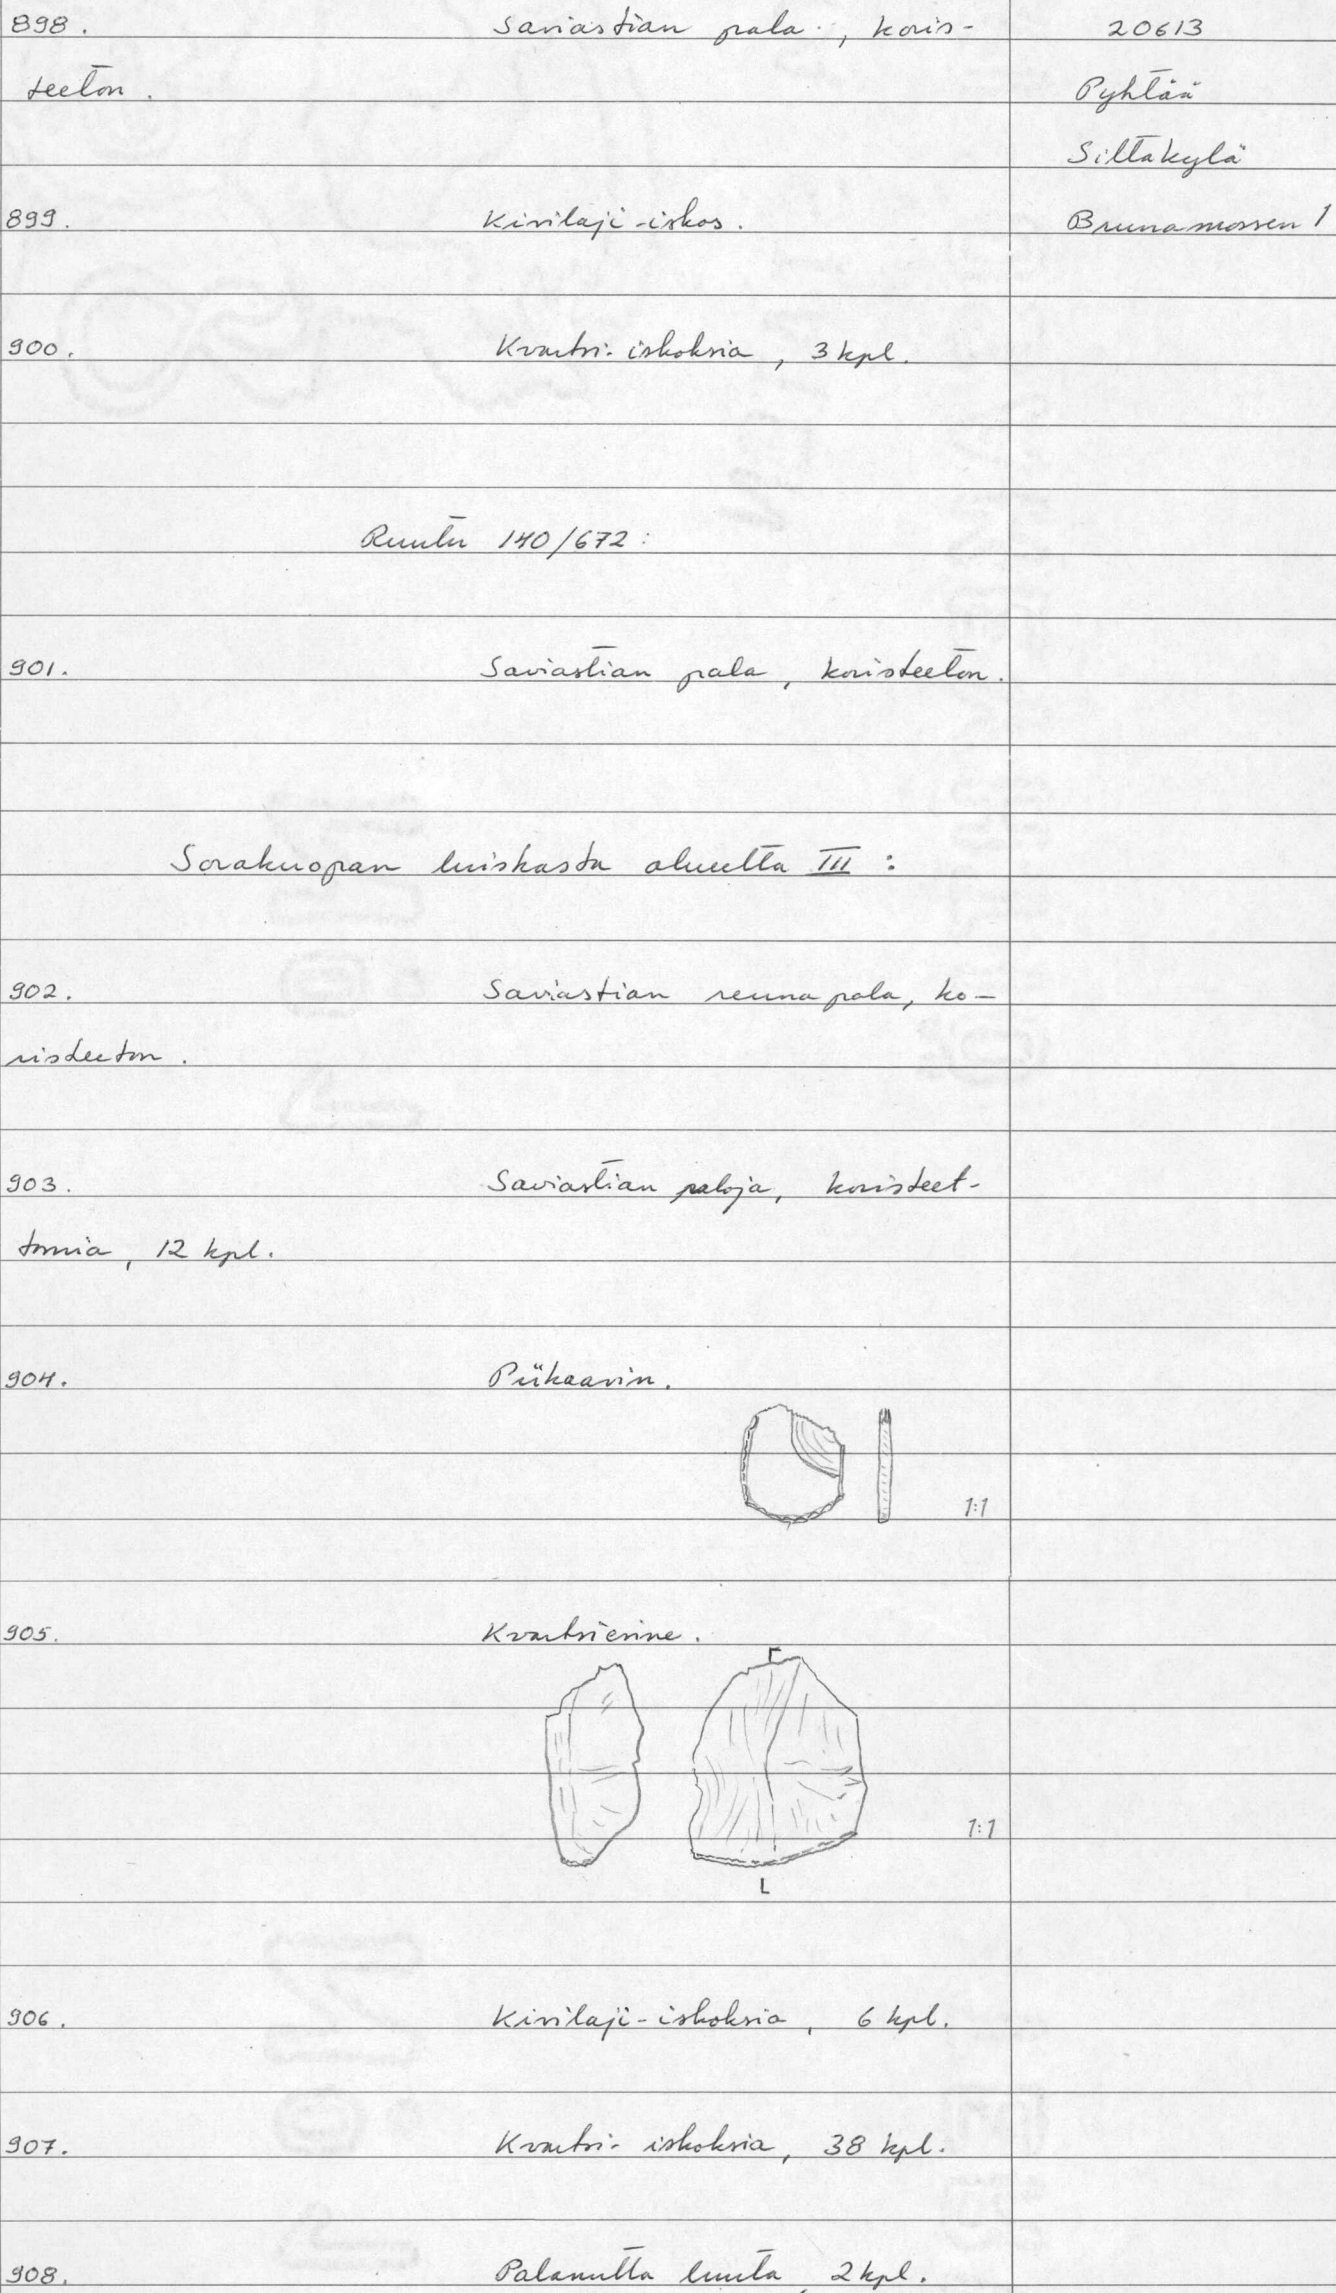 898. Saviastian pala, koris- 20613
teeton. Pyhtää
Siltakylä
899. Kivilaji-iskos. Brunamossen 1
900. Kvartsi-iskoksia, 3 kpl.
Ruutu 140/672:
901. Saviastian pala, koristeeton.
Sorakuopan luiskasta alueelta III:
902. Saviastian reunapala, ko-
risteeton.
903. Saviastian paloja, koristeet-
tomia, 12 kpl.
904. Piikaavin.
1:1
905. Kvartsiesine.
1:1
906. Kivilaji-iskoksia, 6 kpl.
907. Kvartsi-iskoksia, 38 kpl.
908. Palanutta luuta, 2 kpl.